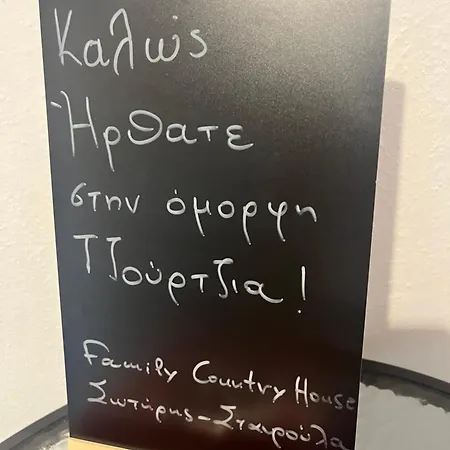 Καλώς
Ήρθατε
στην όμορφη
Τζούρτζια!
Family Country House
Σωτήρης-Σταυρούλα